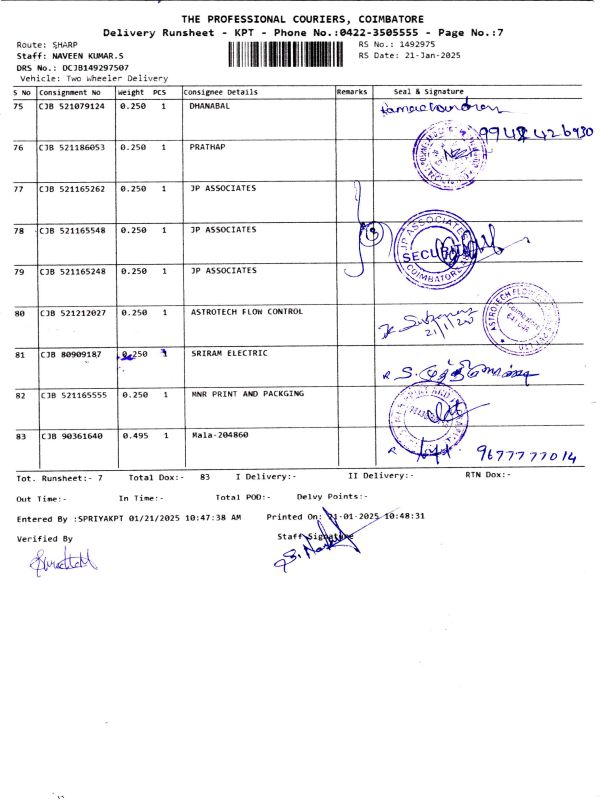 THE PROFESSIONAL COURIERS, COIMBATORE
Delivery Runsheet - KPT - Phone No.:0422-3505555 - Page No.:7
Route: SHARP
RS No.: 1492975
Staff: NAVEEN KUMAR.S
RS Date: 21-Jan-2025
DRS No.: DCJB149297507
Vehicle: Two Wheeler Delivery
S No Consignment No Weight PCS Consignee Details Remarks Seal & Signature
75 CJB 521079124 0.250 1 DHANABAL Ramachandran
76 CJB 521186053 0.250 1 PRATHAP
77 CJB 521165262 0.250 1 JP ASSOCIATES
78 CJB 521165548 0.250 1 JP ASSOCIATES 3 JP ASSOCIATES SECURITY COIMBATORE
79 CJB 521165248 0.250 1 JP ASSOCIATES
80 CJB 521212027 0.250 1 ASTROTECH FLOW CONTROL ASTROTECH FLOW
81 CJB 80909187 0.250 1 SRIRAM ELECTRIC
82 CJB 521165555 0.250 1 MNR PRINT AND PACKGING
83 CJB 90361640 0.495 1 Mala-204860 9677777014
Tot. Runsheet:- 7 Total Dox:- 83 I Delivery:- II Delivery:- RTN Dox:-
Out Time:- In Time:- Total POD:- Delvy Points:-
Entered By :SPRIYAKPT 01/21/2025 10:47:38 AM Printed On: 21-01-2025 10:48:31
Verified By Staff Signature